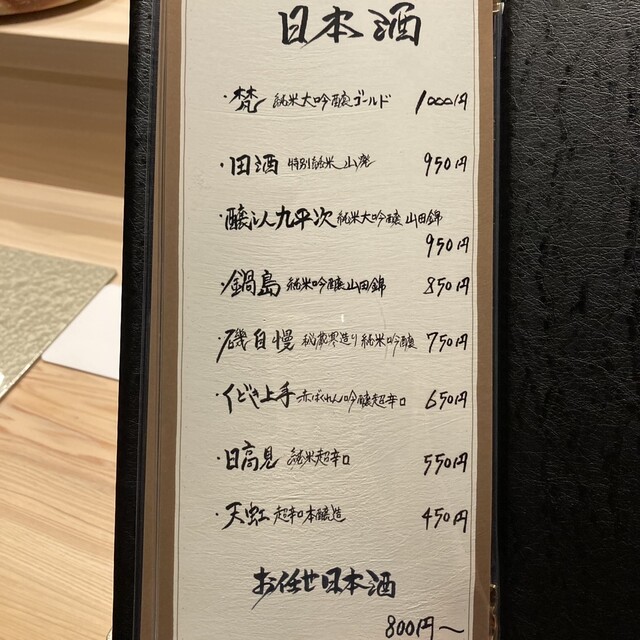 日本酒
・梵 純米大吟醸ゴールド 1000円
・田酒 特別純米 山廃 950円
・醸し人九平次 純米大吟醸 山田錦
950円
・鍋島 純米吟醸山田錦 850円
・磯自慢 秘蔵寒造り 純米吟醸 750円
・くどき上手 赤ばくれん吟醸超辛口 650円
・日高見 純米超辛口 550円
・天虹 超辛口本醸造 450円
お任せ日本酒
800円〜